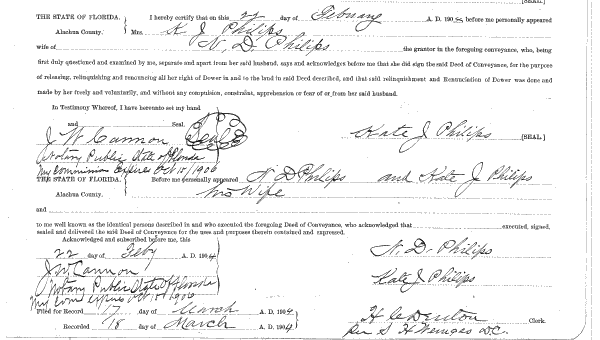 [SEAL]
THE STATE OF FLORIDA. I hereby certify that on this 22 day of February A. D. 1904, before me personally appeared
Alachua County. Mrs. K J Philips
wife of N. D. Philips the grantor in the foregoing conveyance, who, being
first duly questioned and examined by me, separate and apart from her said husband, says and acknowledges before me that she did sign the said Deed of Conveyance, for the purpose
of releasing, relinquishing and renouncing all her right of Dower in and to the land in said Deed described, and that said relinquishment and Renunciation of Dower was done and
made by her freely and voluntarily, and without any compulsion, constraint, apprehension or fear of or from her said husband.
In Testimony Whereof, I have hereunto set my hand
and Seal.
J W Cannon Seal Kate J Philips [SEAL]
Notary Public State of Florida
My commission Expires Oct 15/1906
THE STATE OF FLORIDA. Before me personally appeared N D Philips and Kate J Philips
Alachua County. his Wife
and
to me well known as the identical persons described in and who executed the foregoing Deed of Conveyance, who acknowledged that executed, signed,
sealed and delivered the said Deed of Conveyance for the uses and purposes therein contained and expressed.
Acknowledged and subscribed before me, this
22 day of Feby A. D. 1904 N. D. Philips
J W Cannon Kate J Philips
Notary Public State of Florida
My Com expires Oct 15 1906
Filed for Record 17 day of March A. D. 1904 H C Denton Clerk.
Recorded 18 day of March A. D. 1904 Per S H D.C.